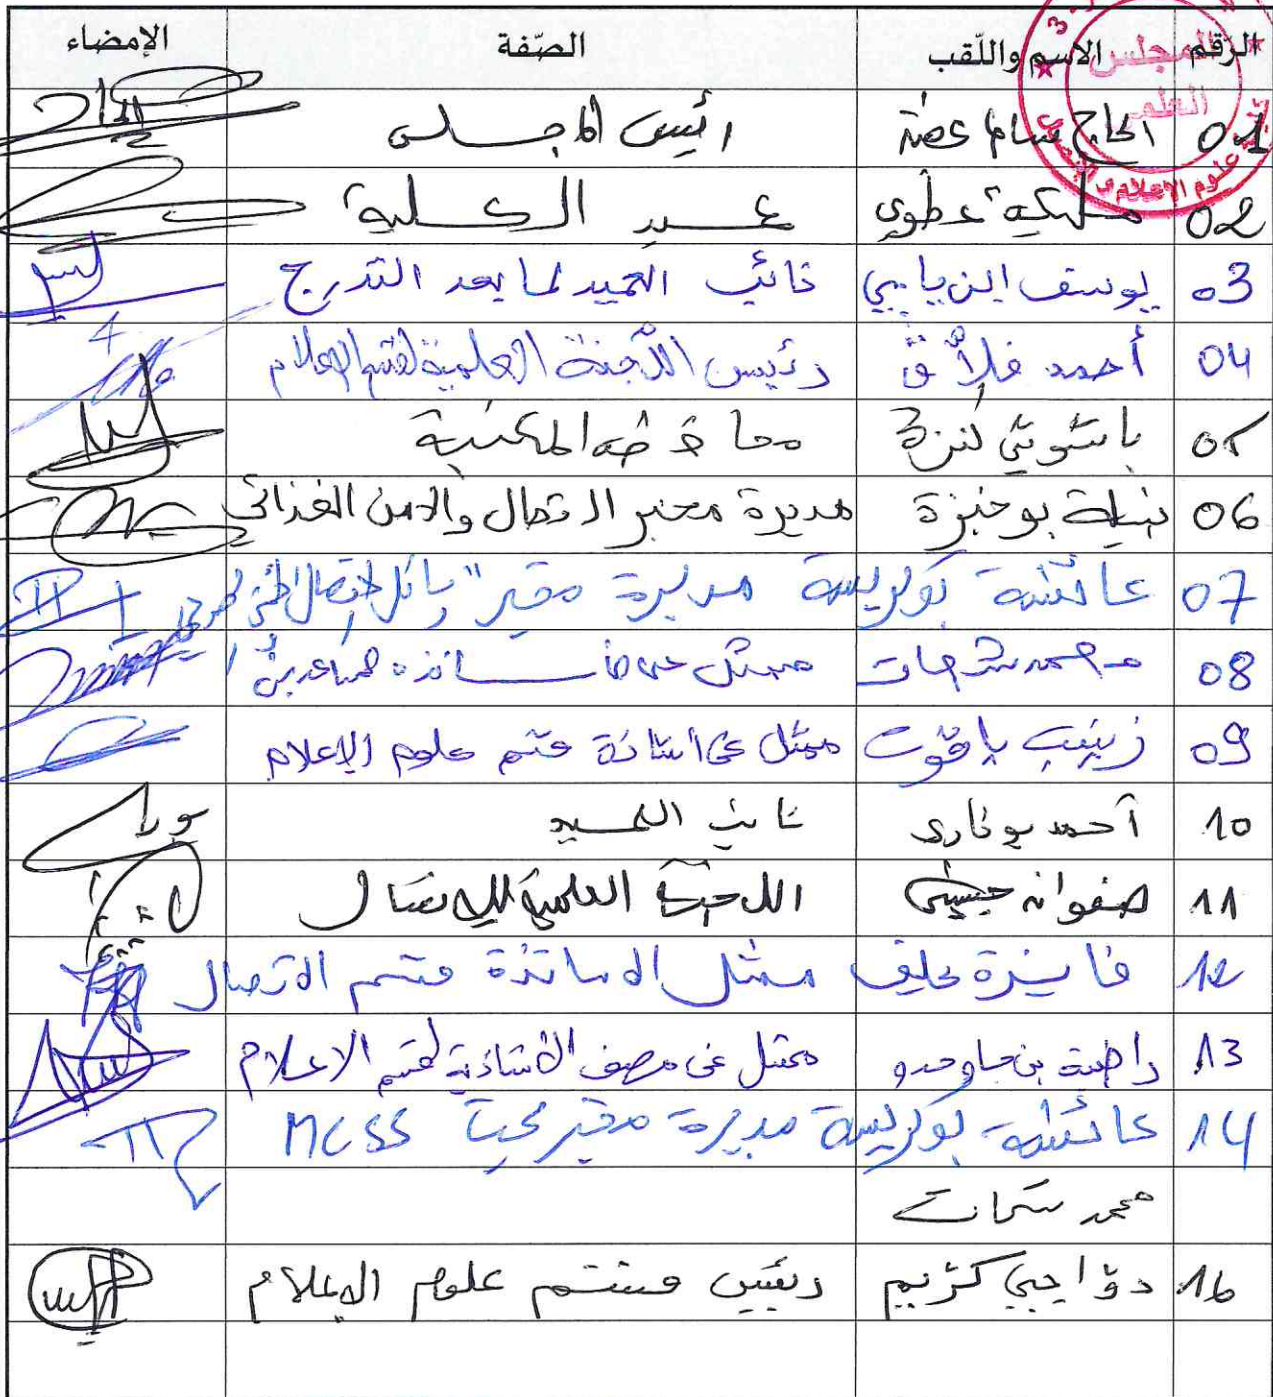 الرّقم الاسم واللّقب الصّفة الإمضاء
المجلس
العلمي
علوم الإعلام و
01 الحاج سالم عطية رئيس المجلس
02 مليكة عطوي عميد الكلية
03 يوسف تمار نائب العميد لما بعد التدرج
04 أحمد فلاق رئيس اللّجنة العلمية لقسم الإعلام
05 باشوتي كنزة محافظة المكتبة
06 نبيلة بوخبزة مديرة مخبر الاتصال والامن الغذائي
07 عائشة بوكريسة مديرة مخبر
08 محمد شرحات ممثل
09 زينب ياقوت ممثل عن أساتذة قسم علوم الإعلام
10 أحمد بوخاري نائب العميد
11 صفوان حبيشي اللجنة العلمية للاتصال
12 فايزة يخلف ممثل الاساتذة قسم الاتصال
13 راضية بن جاوحدو ممثل عن مصف الأستاذية لقسم الاعلام
14 عائشة بوكريسة مديرة مخبر بحث MCSS
محمد شرحات
16 دواجي كريم رئيس قسم علوم الإعلام